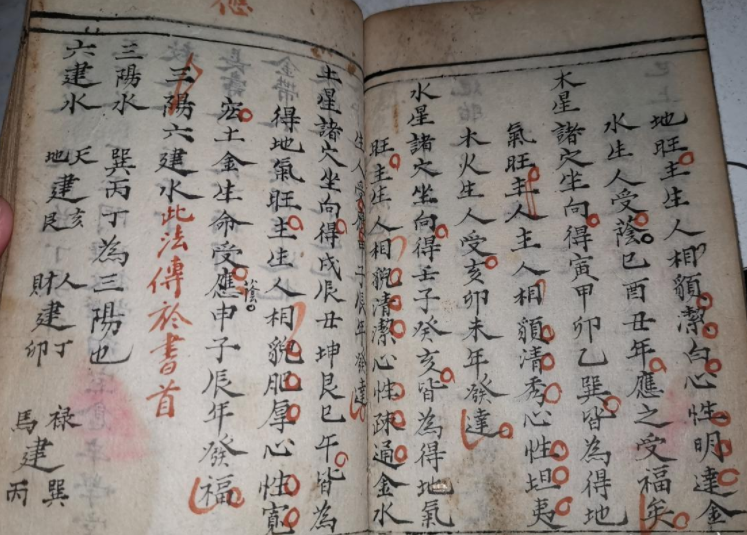 地旺主生人相貌潔白心性明達金
水生人受蔭巳酉丑年應之受福矣
木星諸穴坐向得寅甲卯乙巽皆為得地
氣旺主人主人相貌清秀心性坦夷
木火生人受亥卯未年發達
水星諸穴坐向得壬子癸亥皆為得地氣
旺主生人相貌清潔心性疎通金水
生人受應申子辰年發達
土星諸穴坐向得戌辰丑坤艮巳午皆為
得地氣旺主生人相貌肥厚心性寬
宏土金生命受應蔭申子辰年發福
三陽六建水此法傳於書首
三陽水 巽丙丁為三陽也
六建水 天建亥 地建艮 人建丁 財建卯 祿建巽 馬建丙